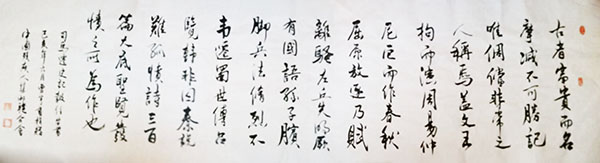 古者富貴而名
摩滅不可勝記
唯倜儻非常之
人稱焉蓋文王
拘而演周易仲
尼厄而作春秋
屈原放逐乃賦
離騷左丘失明厥
有國語孫子臏
脚兵法修列不
韋遷蜀世傳呂
覽韓非囚秦說
難孤憤詩三百
篇大底聖賢發
憤之所為作也
司馬遷
己亥年六月
中國